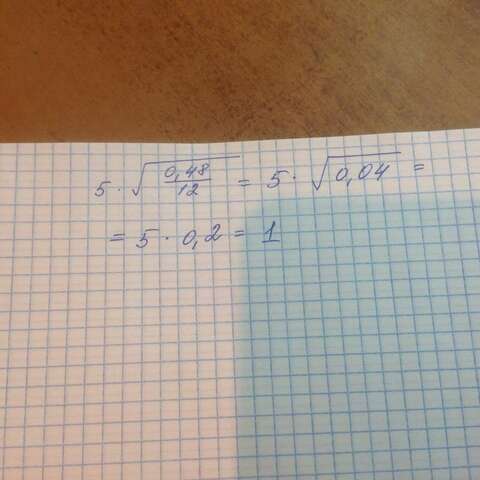 5 · √(0,48/12) = 5 · √0,04 =
= 5 · 0,2 = 1